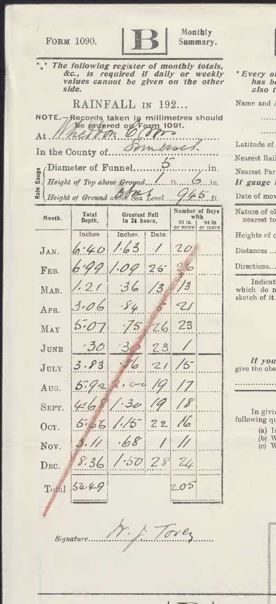 FORM 1090.
B
Monthly
Summary.
The following register of monthly totals,
&c., is required if daily or weekly
values cannot be given on the other
side.
RAINFALL in 192...
NOTE.—Records taken in millimetres should
be entered on Form 1091.
At
In the County of Somerset
Rain Gauge
Diameter of Funnel 5 in.
Height of Top above Ground 1 ft. 6 in.
Height of Ground above Sea Level 945 ft.
Month. Total Depth. Greatest Fall in 24 hours. Number of Days with
Inches. Inches. Date. ·01 in. or more ·04 in. or more
JAN. 6.40 1.63 1 20
FEB. 6.99 1.09 25
MAR. 1.21 .36 13 13
APR. 3.06 .84 21
MAY 5.07 .75 26 23
JUNE .30 23 1
JULY 3.83 21 15
AUG. 5.92 19 17
SEPT. 1.30 19 18
OCT. 1.15 22 16
NOV. 3.11 .68 1 11
DEC. 8.36 1.50 28 24
Total 54.49 205
Signature W. J. Tovey
* Every o
has b
also t
Name and
Latitude of
Nearest Rail
Nearest Par
If gauge
Date of mov
Nature of ol
nearest to
Heights of o
Distances
Directions
Indicat
which do n
sketch of it.
If you
give the obs
In givi
following qu
(a) I
(b) W
(c) W